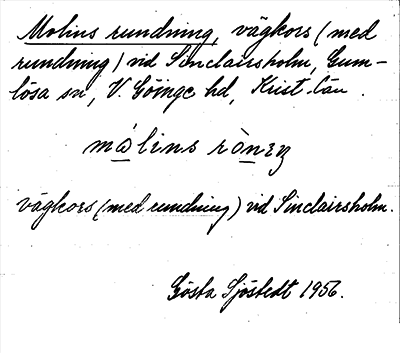 Molins rundning, vägkors (med
rundning) vid Sinclairsholm, Gum-
lösa sn, V. Göinge hd, Krist. län.
målins ròneŋ
vägkors (med rundning) vid Sinclairsholm.
Gösta Sjöstedt 1956.